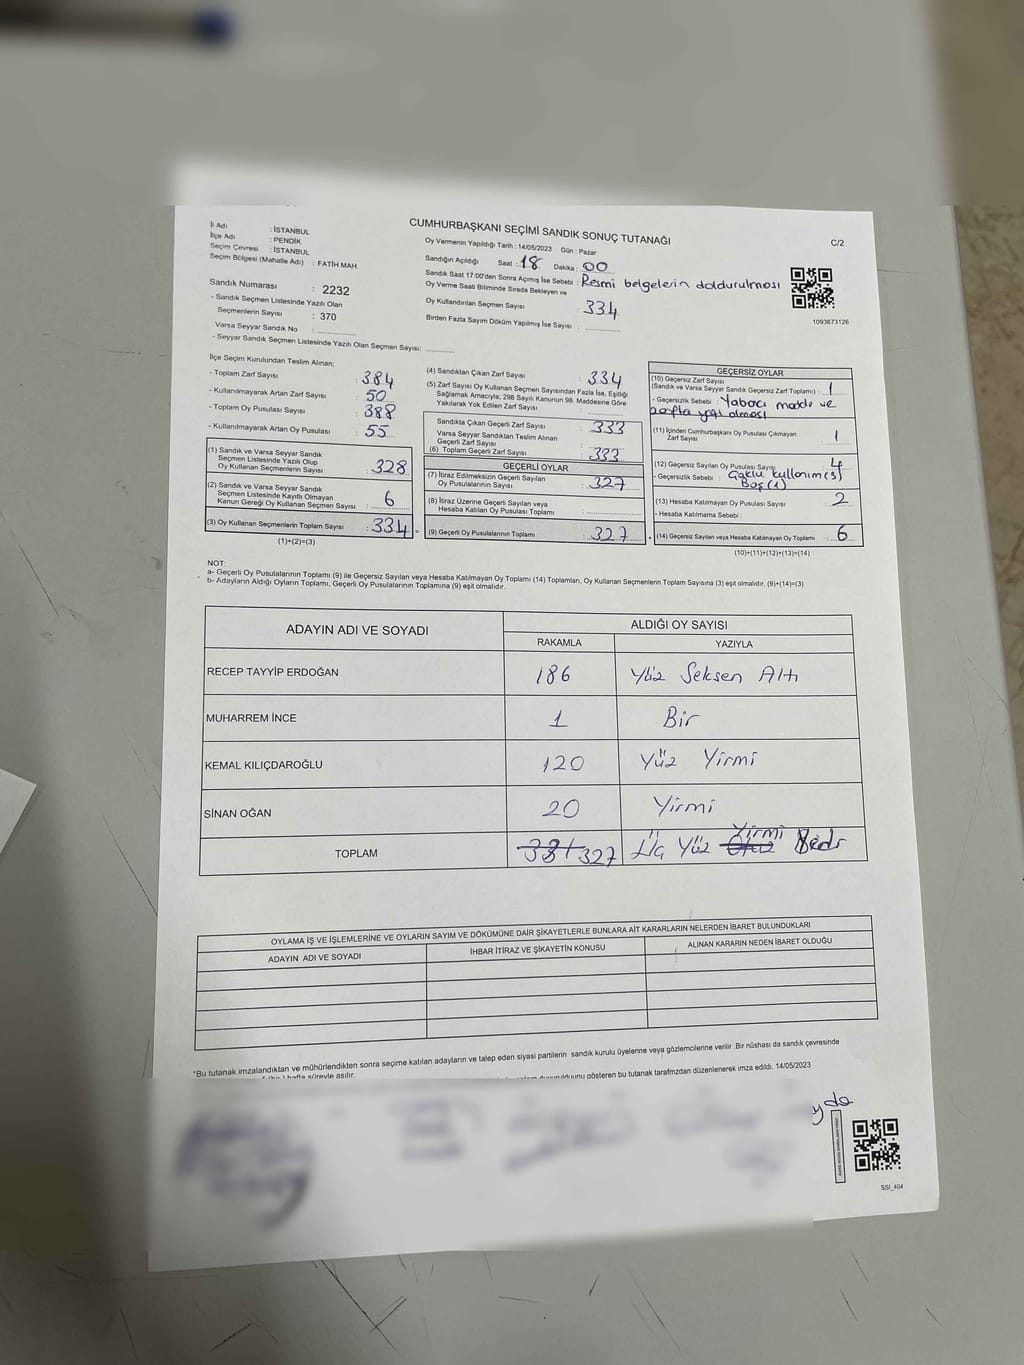 CUMHURBAŞKANI SEÇİMİ SANDIK SONUÇ TUTANAĞI
C/2
İl Adı : İSTANBUL
İlçe Adı : PENDİK
Seçim Çevresi : İSTANBUL
Seçim Bölgesi (Mahalle Adı) : FATİH MAH.
Sandık Numarası : 2232
- Sandık Seçmen Listesinde Yazılı Olan
Seçmenlerin Sayısı : 370
Varsa Seyyar Sandık No :
- Seyyar Sandık Seçmen Listesinde Yazılı Olan Seçmen Sayısı:
Oy Vermenin Yapıldığı Tarih : 14/05/2023 Gün : Pazar
Sandığın Açıldığı Saat : 18 Dakika : 00
Sandık Saat 17:00'den Sonra Açılmış İse Sebebi : Resmi belgelerin doldurulması
Oy Verme Saati Bitiminde Sırada Bekleyen ve
Oy Kullandırılan Seçmen Sayısı : 334
Birden Fazla Sayım Döküm Yapılmış İse Sayısı :
1093673126
İlçe Seçim Kurulundan Teslim Alınan;
- Toplam Zarf Sayısı : 384
- Kullanılmayarak Artan Zarf Sayısı : 50
- Toplam Oy Pusulası Sayısı : 388
- Kullanılmayarak Artan Oy Pusulası : 55
(1) Sandık ve Varsa Seyyar Sandık
Seçmen Listesinde Yazılı Olup
Oy Kullanan Seçmenlerin Sayısı : 328
(2) Sandık ve Varsa Seyyar Sandık
Seçmen Listesinde Kayıtlı Olmayan
Kanun Gereği Oy Kullanan Seçmen Sayısı : 6
(3) Oy Kullanan Seçmenlerin Toplam Sayısı : 334
(1)+(2)=(3)
(4) Sandıktan Çıkan Zarf Sayısı : 334
(5) Zarf Sayısı Oy Kullanan Seçmen Sayısından Fazla İse, Eşitliği
Sağlamak Amacıyla; 298 Sayılı Kanunun 98. Maddesine Göre
Yakılarak Yok Edilen Zarf Sayısı :
Sandıkta Çıkan Geçerli Zarf Sayısı : 333
Varsa Seyyar Sandıktan Teslim Alınan
Geçerli Zarf Sayısı :
(6) Toplam Geçerli Zarf Sayısı : 333
GEÇERLİ OYLAR
(7) İtiraz Edilmeksizin Geçerli Sayılan
Oy Pusulalarının Sayısı : 327
(8) İtiraz Üzerine Geçerli Sayılan veya
Hesaba Katılan Oy Pusulası Toplamı :
(9) Geçerli Oy Pusulalarının Toplamı : 327
GEÇERSİZ OYLAR
(10) Geçersiz Zarf Sayısı
(Sandık ve Varsa Seyyar Sandık Geçersiz Zarf Toplamı) : 1
- Geçersizlik Sebebi : Yabancı madde ve
zarfta yazı olması
(11) İçinden Cumhurbaşkanı Oy Pusulası Çıkmayan
Zarf Sayısı : 1
(12) Geçersiz Sayılan Oy Pusulası Sayısı : 4
- Geçersizlik Sebebi : Çoklu kullanım (3)
Boş (1)
(13) Hesaba Katılmayan Oy Pusulası Sayısı : 2
- Hesaba Katılmama Sebebi :
(14) Geçersiz Sayılan veya Hesaba Katılmayan Oy Toplamı : 6
(10)+(11)+(12)+(13)=(14)
NOT:
a- Geçerli Oy Pusulalarının Toplamı (9) ile Geçersiz Sayılan veya Hesaba Katılmayan Oy Toplamı (14) Toplamları, Oy Kullanan Seçmenlerin Toplam Sayısına (3) eşit olmalıdır. (9)+(14)=(3)
b- Adayların Aldığı Oyların Toplamı, Geçerli Oy Pusulalarının Toplamına (9) eşit olmalıdır.
ADAYIN ADI VE SOYADI ALDIĞI OY SAYISI
RAKAMLA YAZIYLA
RECEP TAYYİP ERDOĞAN 186 Yüz Seksen Altı
MUHARREM İNCE 1 Bir
KEMAL KILIÇDAROĞLU 120 Yüz Yirmi
SİNAN OĞAN 20 Yirmi
TOPLAM 327 Üç Yüz Yirmi Yedi
OYLAMA İŞ VE İŞLEMLERİNE VE OYLARIN SAYIM VE DÖKÜMÜNE DAİR ŞİKAYETLERLE BUNLARA AİT KARARLARIN NELERDEN İBARET BULUNDUKLARI
ADAYIN ADI VE SOYADI İHBAR İTİRAZ VE ŞİKAYETİN KONUSU ALINAN KARARIN NEDEN İBARET OLDUĞU
*Bu tutanak imzalandıktan ve mühürlendikten sonra seçime katılan adayların ve talep eden siyasi partilerin sandık kurulu üyelerine veya gözlemcilerine verilir. Bir nüshası da sandık çevresinde
hafta süreyle asılır.
gösteren bu tutanak tarafımızdan düzenlenerek imza edildi. 14/05/2023
SSI_404